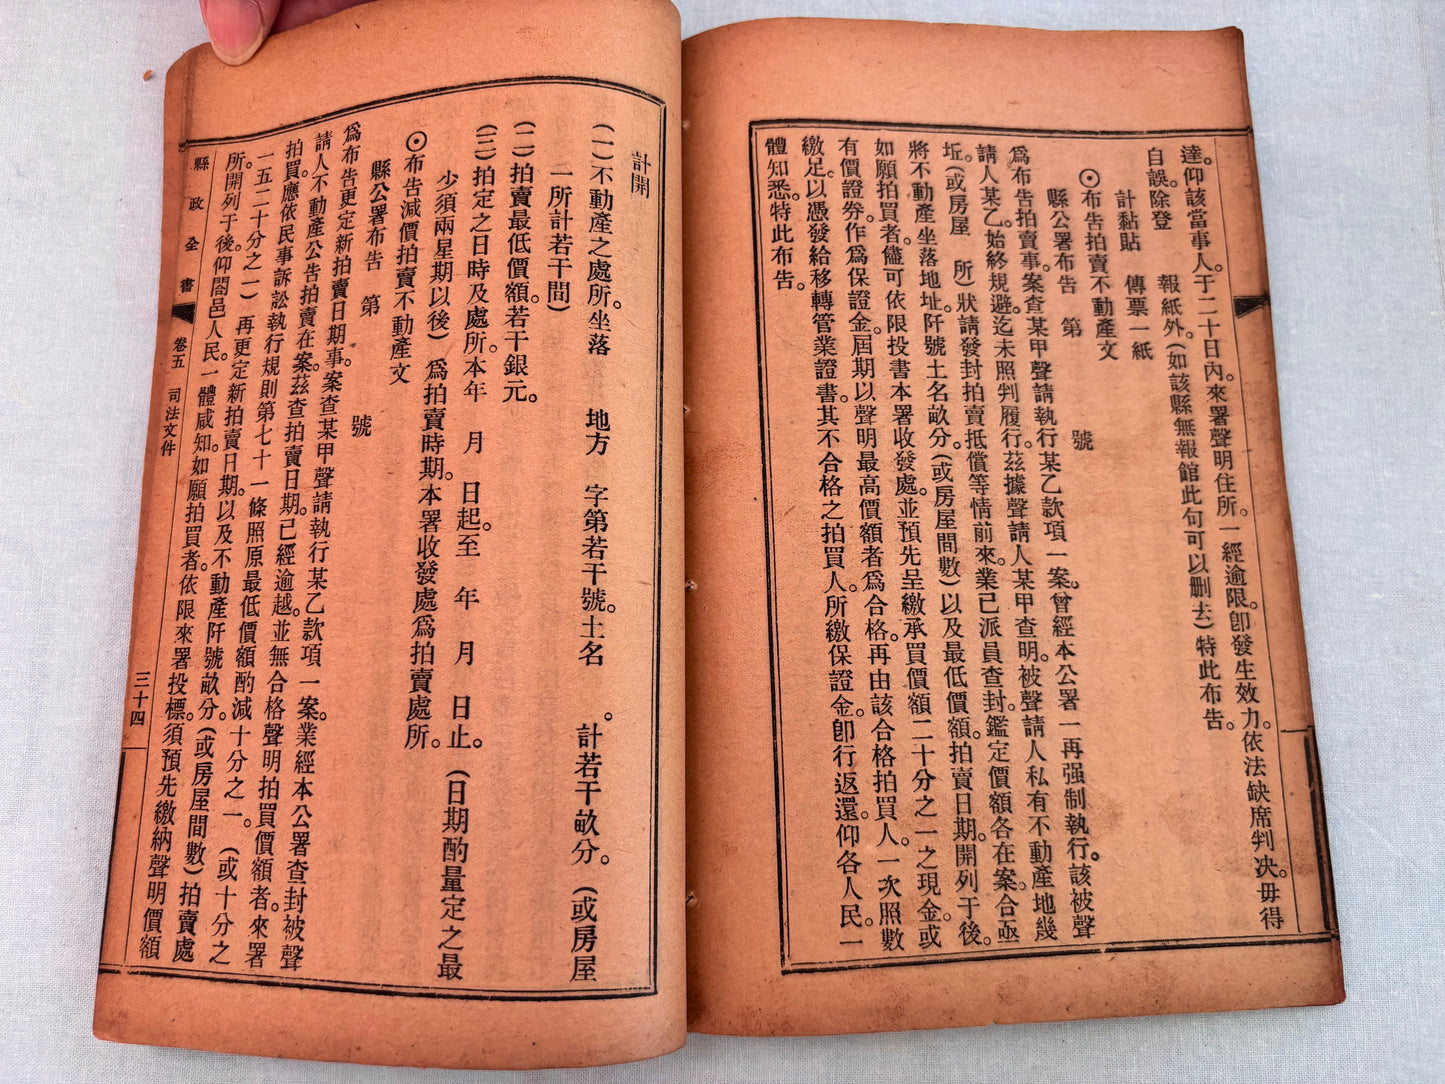 達。仰該當事人。于二十日內。來署聲明住所。一經逾限。卽發生效力。依法缺席判决。毋得
自誤。除登　報紙外。(如該縣無報館此句可以删去)特此布告。
計黏貼　傳票一紙
⊙布告拍賣不動產文
縣公署布告　第　號
爲布告拍賣事。案查某甲聲請執行某乙款項一案。曾經本公署一再强制執行。該被聲
請人某乙。始終規避。迄未照判履行。茲據聲請人某甲查明。被聲請人私有不動產地幾
坵。(或房屋　所)狀請發封拍賣抵償等情前來。業已派員查封。鑑定價額各在案。合亟
將不動產坐落地址。阡號土名畝分。(或房屋間數)以及最低價額。拍賣日期。開列于後。
如願拍買者。儘可依限投書本署收發處。並預先呈繳承買價額二十分之一之現金。或
有價證券。作爲保證金。屆期以聲明最高價額者爲合格。再由該合格拍買人。一次照數
繳足。以憑發給移轉管業證書。其不合格之拍買人。所繳保證金。卽行返還。仰各人民。一
體知悉。特此布告。
計開
(一)不動產之處所。坐落　地方　字第若干號。土名　。計若干畝分。(或房屋
二所計若干間)
(二)拍賣最低價額。若干銀元。
(三)拍定之日時及處所。本年　月　日起。至　年　月　日止。(日期酌量定之最
少須兩星期以後)爲拍賣時期。本署收發處爲拍賣處所。
⊙布告減價拍賣不動產文
縣公署布告　第　號
爲布告更定新拍賣日期事。案查某甲聲請執行某乙款項一案。業經本公署查封被聲
請人不動產。公告拍賣在案。茲查拍賣日期。已經逾越。並無合格聲明拍買價額者。來署
拍買。應依民事訴訟執行規則第七十一條照原最低價額酌減十分之一。(或十分之
一五二十分之一)再更定新拍賣日期。以及不動產阡號畝分。(或房屋間數)拍賣處
所。開列于後。仰閤邑人民。一體咸知。如願拍買者。依限來署投標。須預先繳納聲明價額
縣政全書　卷五　司法文件　三十四